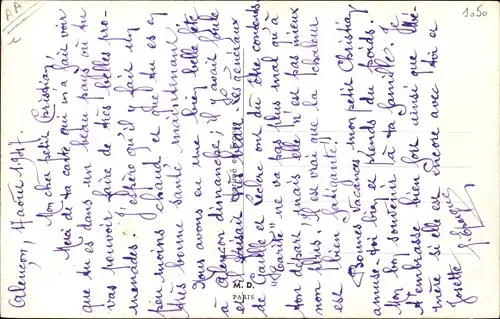 Alençon, 1 août 1947.
Mon cher petit Christian,
Merci de ta carte qui m'a fait voir
que tu es dans un beau pays où tu
vas pouvoir faire de très belles pro-
menades. J'espère qu'il y fait un
peu moins chaud et que tu es en
très bonne santé maintenant.
Nous avons eu une bien belle fête
à Alençon dimanche; il y avait foule
et il faisait
les généraux
de Gaulle et Leclerc ont dû être contents.
ne va pas plus mal qu'à
ton départ, mais elle n'en pas mieux
non plus. Il est vrai que la chaleur
est bien fatigante!
Bonnes vacances, mon petit Christian
amuse-toi bien et prends du poids.
Mon bon souvenir à ta famille. Je
t'embrasse bien fort ainsi que Mé-
mère si elle est encore avec toi et
Josette
M.D.
PARIS
AA
1050